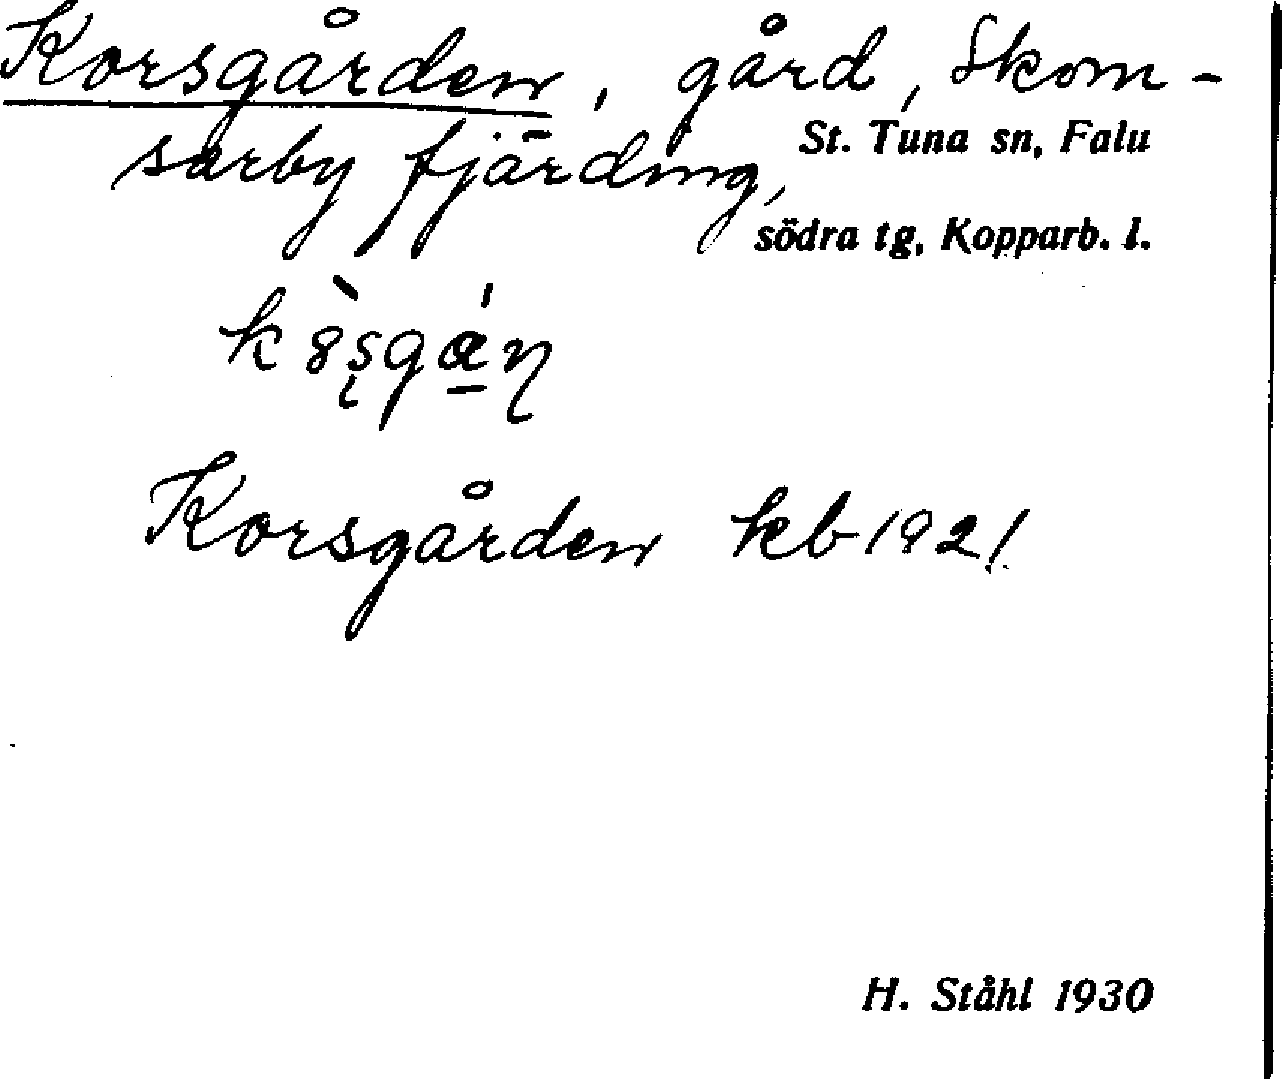 Korsgården, gård, Skom-
sarby fjärding,
St. Tuna sn, Falu
södra tg, Kopparb. l.
Korsgården kb 1921
H. Ståhl 1930